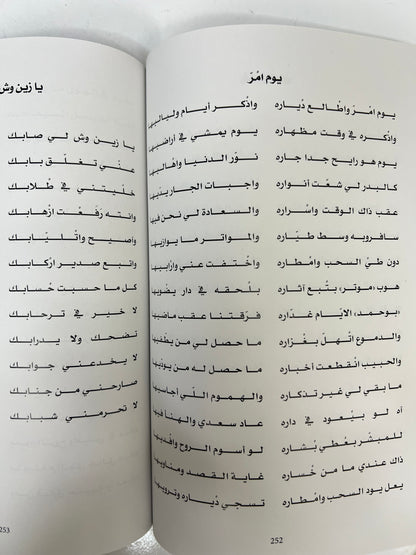 يوم امْرّ
يوم امْرّ واطْالع دْياره واذْكر أيام ولياليها
واذْكره في وقت مظهاره يوم يمشي في اراضيها
يوم هو رايح جدا جاره نوّر الدنيا واهْاليها
كالبدر لي شعّت أنواره واجبات الجار يدّيها
عقب ذاك الوقت واسْراره والسعادة لي نحن فيها
سافروبه وسط طيّاره والمواتر ما يوازيها
دون طيّ السحب وامْطاره واخْتفت عني وازابيها
هوب «موتر» بتْبع آثاره بلْحقه في دار يضويها
«بوحمد» الايّام غدّاره فرّقتنا عقب ماضيها
والدموع اتْهلّ بغْزاره ما حصل لي من يطفّيها
والحبيب انْقطعت أخباره ما حصل له من يودّيها
ما بقي لي غير تذكاره والهموم اللّي أجانبها
آه لو بيْعود في داره عاد سعدي والهنا فيها
للمبشّر بعْطي بْشاره لو أسوم الروح وافْديها
ذاك عندي ما من خْساره غاية القصد ومناويها
يعل يود السحب وامْطاره تسجي دْياره وترويها
252
يا زين وش
يا زين وش لي صابك
عنّي تغلّق بابك
خلّيتني في طْلابك
وانته رَفَعْت ارْهابك
واصيح واتْليّابك
واتبع صدير ارْكابك
كل ما حسبت حْسابك
لا خير في ترحابك
تضحك ولا يدرابك
لا يخدعني جوابك
صارحني من جنابك
لا تحرمني شبابك
253